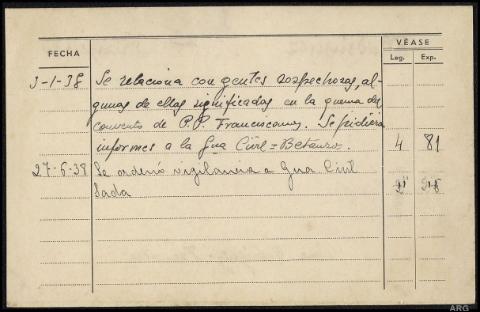 FECHA VÉASE
Leg. Exp.
3-1-38 Se relaciona con gentes sospechosas, al-
gunas de ellas significadas en la quema del
convento de P.P. Franciscanos. Se pidieron
informes a la Gua Civil = Betanzos. 4 81
27-6-38 Se ordenó vigilancia a Gua Civil
Sada
ARG